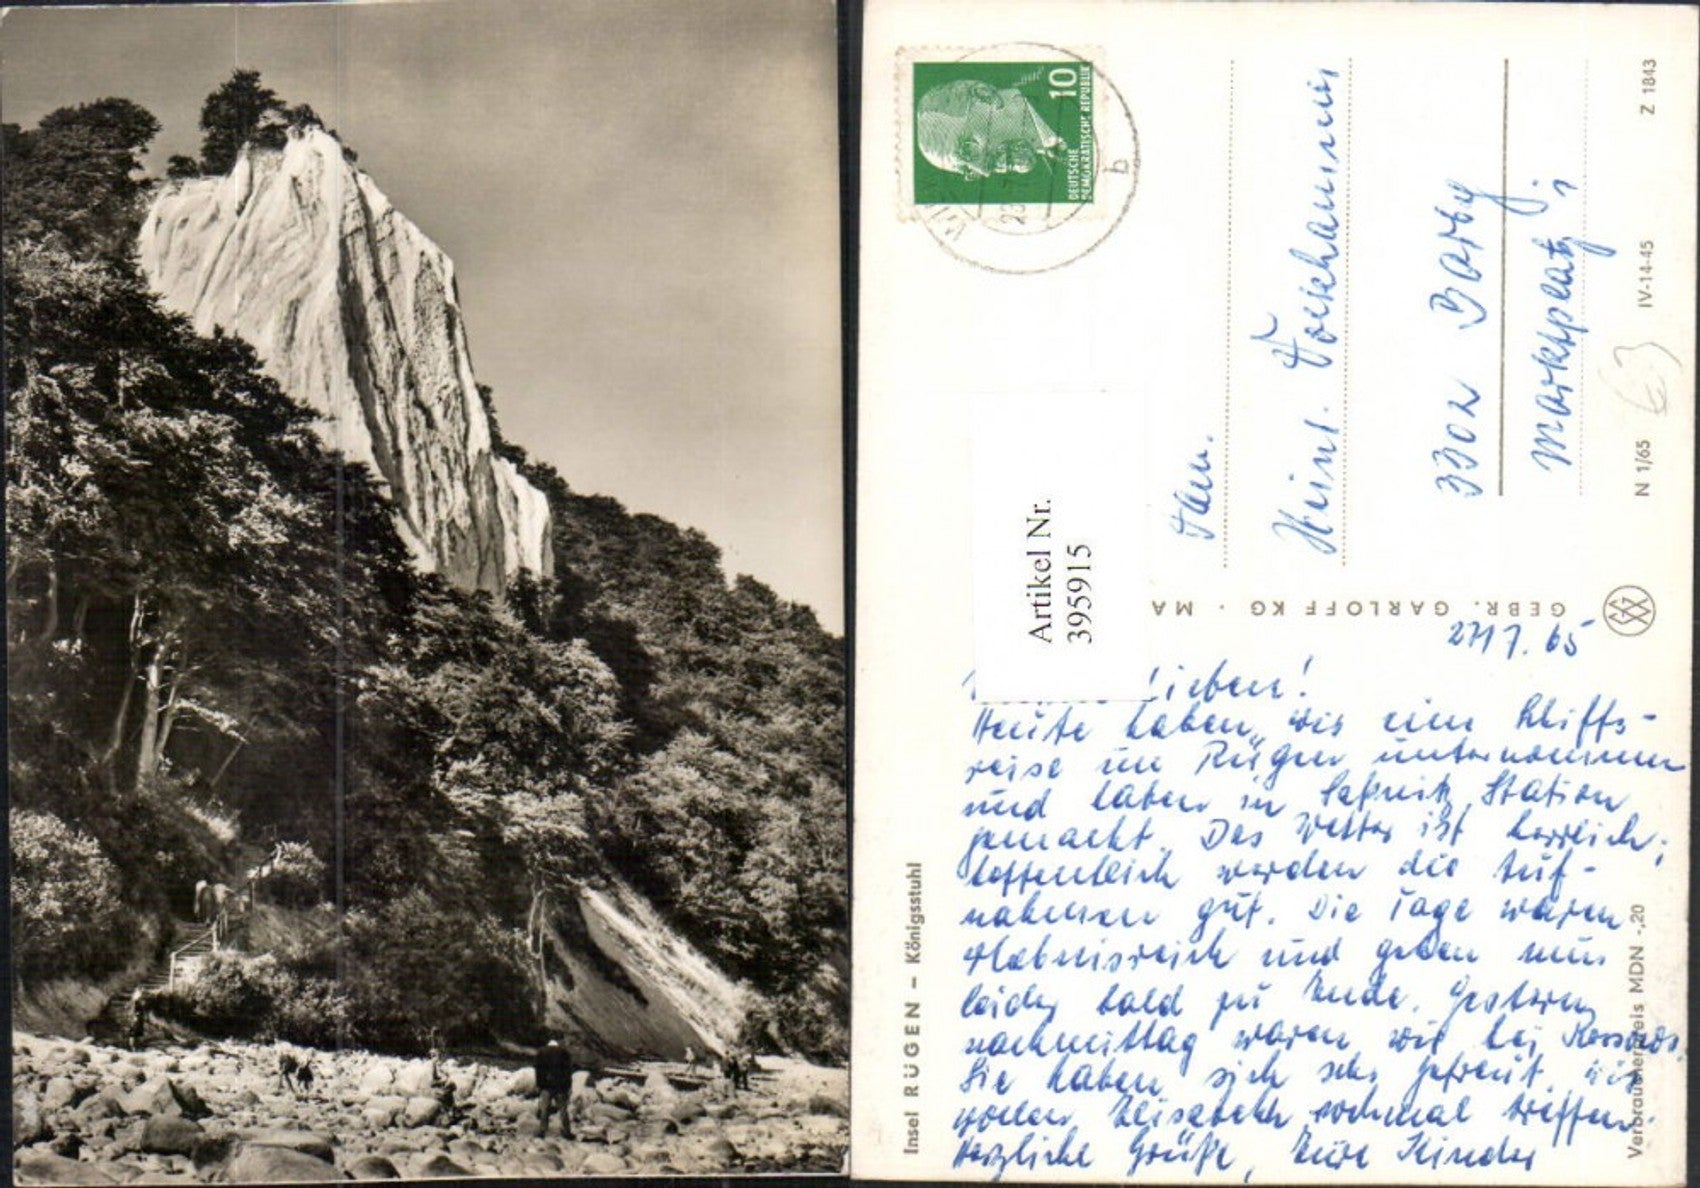 10
DEUTSCHE
DEMOKRATISCHE REPUBLIK
b
Artikel Nr.
395915
Fam.
Heinr.
3302 Barby
Marktplatz
Z 1843
IV-14-45
N 1/65
GEBR. GARLOFF KG · MA
Insel RÜGEN – Königsstuhl
Verbraucherpreis MDN -,20
7. 65
Lieben!
Heute haben wir eine Schiffs-
reise um Rügen unternommen
und haben in Saßnitz Station
gemacht. Das Wetter ist herrlich;
hoffentlich werden die Auf-
nahmen gut. Die Tage waren
erlebnisreich und gehen nun
leider bald zu Ende. Gestern
nachmittag waren wir bei
Sie haben sich sehr gefreut. Wir
wollen Elisabeth nochmal treffen.
Herzliche Grüße, Eure Kinder